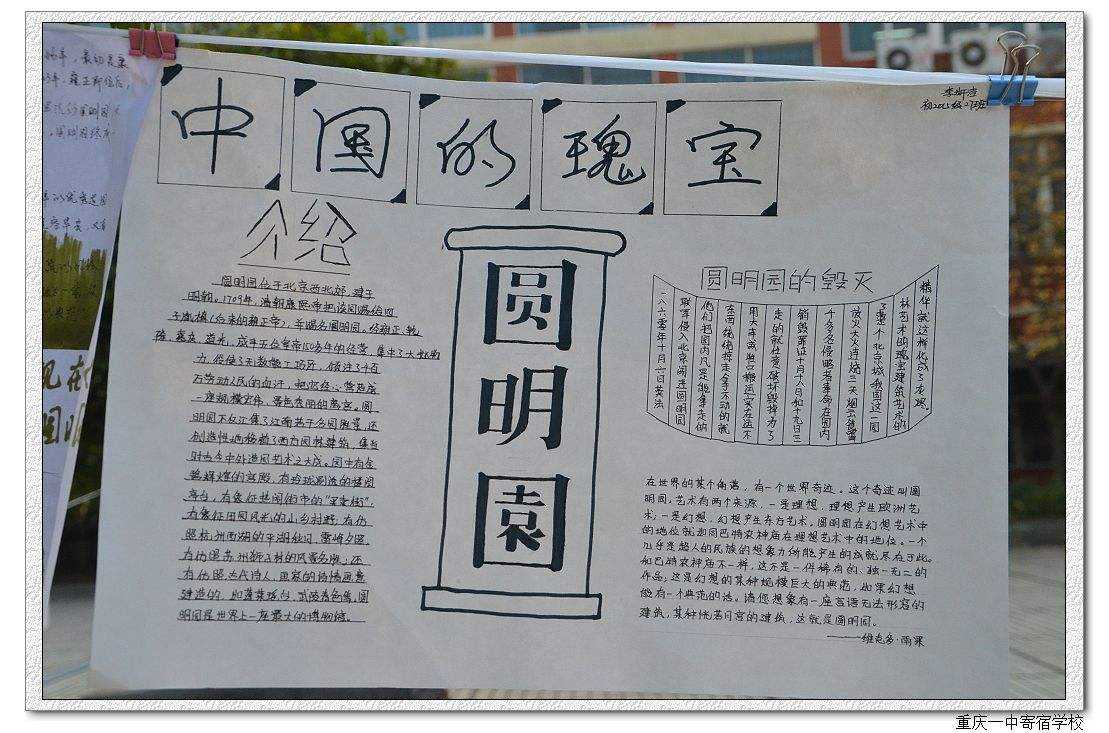 中国的瑰宝
初2015级27班
介绍
圆明园位于北京西北郊，建于
明朝。1709年，清朝康熙帝把该园赐给四
子胤禛（后来的雍正帝），并赐名圆明园。经雍正、乾
隆、嘉庆、道光、咸丰五位皇帝150多年的经营，集中了大批物
力，役使了无数能工巧匠，倾注了千百
万劳动人民的血汗，把它精心营造成
一座规模宏伟、景色秀丽的离宫。圆
明园不仅汇集了江南若干名园胜景，还
创造性地移植了西方园林建筑，集当
时古今中外造园艺术之大成。园中有金
碧辉煌的宫殿，有玲珑剔透的楼阁
亭台，有象征热闹街市的“买卖街”，
有象征田园风光的山乡村野，有仿
照杭州西湖的平湖秋月、雷峰夕照，
有仿照苏州狮子林的风景名胜，还
有仿照古代诗人、画家的诗情画意
建造的，如蓬莱瑶台、武陵春色等。圆
明园是世界上一座最大的博物馆。
圆明园
圆明园的毁灭
一八六零年十月六日英法
联军侵入北京闯进圆明园
他们把园内凡是能拿走的
东西统统掠走拿不动的就
用大车或牲口搬运实在运不
走的就任意破坏毁掉为了
销毁罪证十月十八日和十九日三
千多名侵略者奉命在园内
放火大火连烧三天烟云笼罩
了整个北京城我国这一园
林艺术的瑰宝建筑艺术的
精华就这样化成了灰烬。
在世界的某个角落，有一个世界奇迹。这个奇迹叫圆
明园。艺术有两个来源，一是理想，理想产生欧洲艺
术；一是幻想，幻想产生东方艺术。圆明园在幻想艺术中
的地位就如同巴特农神庙在理想艺术中的地位。一个
几乎是超人的民族的想象力所能产生的成就尽在于此。
和巴特农神庙不一样，这不是一件稀有的、独一无二的
作品；这是幻想的某种规模巨大的典范，如果幻想
能有一个典范的话。请您想象有一座言语无法形容的
建筑，某种恍若月宫的建筑，这就是圆明园。
——维克多·雨果
重庆一中寄宿学校